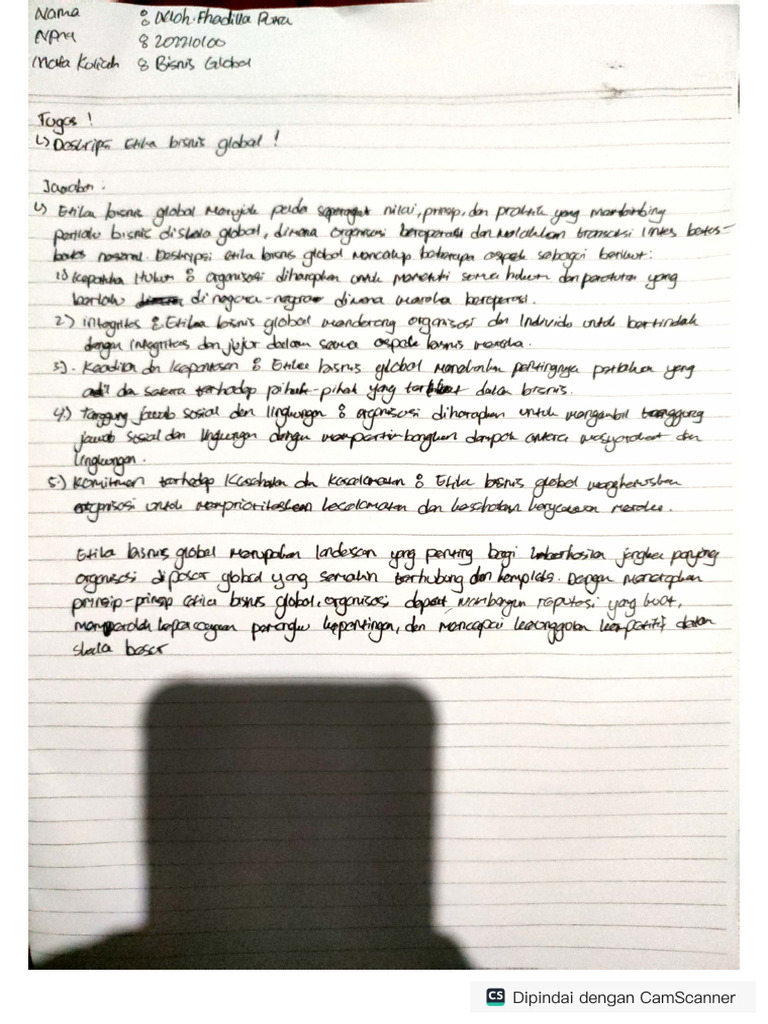 Nama : Moh. Fhadilla Putra
NPM : 202210100
Mata Kuliah : Bisnis Global
Tugas !
↳ Deskripsi Etika bisnis global !
Jawaban :
↳ Etika bisnis global Merujuk pada seperangkat nilai, prinsip, dan praktik yang membimbing
perilaku bisnis diskala global, dimana organisasi beroperasi dan melakukan transaksi lintas batas-
batas nasional. Deskripsi etika bisnis global Mencakup beberapa aspek sebagai berikut:
1.) Kepatuhan Hukum : organisasi diharapkan untuk Mematuhi semua hukum dan peraturan yang
berlaku di negara-negara dimana mereka beroperasi.
2.) integritas : Etika bisnis global mendorong organisasi dan Individu untuk bertindak
dengan integritas dan jujur dalam semua aspek bisnis mereka.
3.). Keadilan dan Kepantasan : Etika bisnis global Menekankan pentingnya perlakuan yang
adil dan setara terhadap pihak-pihak yang terlibat dalam bisnis.
4.) Tanggung jawab sosial dan lingkungan : organisasi diharapkan untuk mengambil tanggung
jawab sosial dan lingkungan dengan mempertimbangkan dampak antara masyarakat dan
lingkungan.
5.) Komitmen terhadap Kesehatan dan Keselamatan : Etika bisnis global mengharuskan
organisasi untuk memprioritaskan keselamatan dan kesehatan karyawan mereka.
Etika bisnis global merupakan landasan yang penting bagi keberhasilan jangka panjang
organisasi dipasar global yang semakin terhubung dan kompleks. Dengan menerapkan
prinsip-prinsip etika bisnis global, organisasi dapat membangun reputasi yang kuat,
memperoleh kepercayaan pemangku kepentingan, dan mencapai keunggulan kompetitif dalam
skala besar
CS Dipindai dengan CamScanner